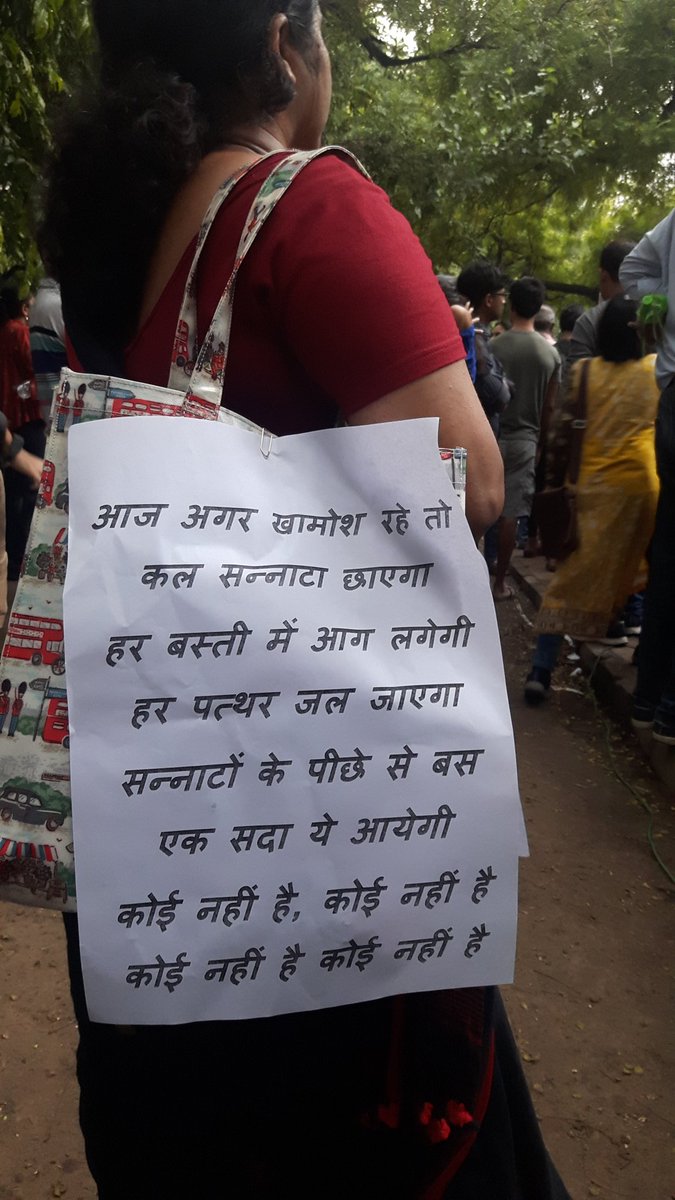 आज अगर खामोश रहे तो
कल सन्नाटा छाएगा
हर बस्ती में आग लगेगी
हर पत्थर जल जाएगा
सन्नाटों के पीछे से बस
एक सदा ये आयेगी
कोई नहीं है, कोई नहीं है
कोई नहीं है कोई नहीं है